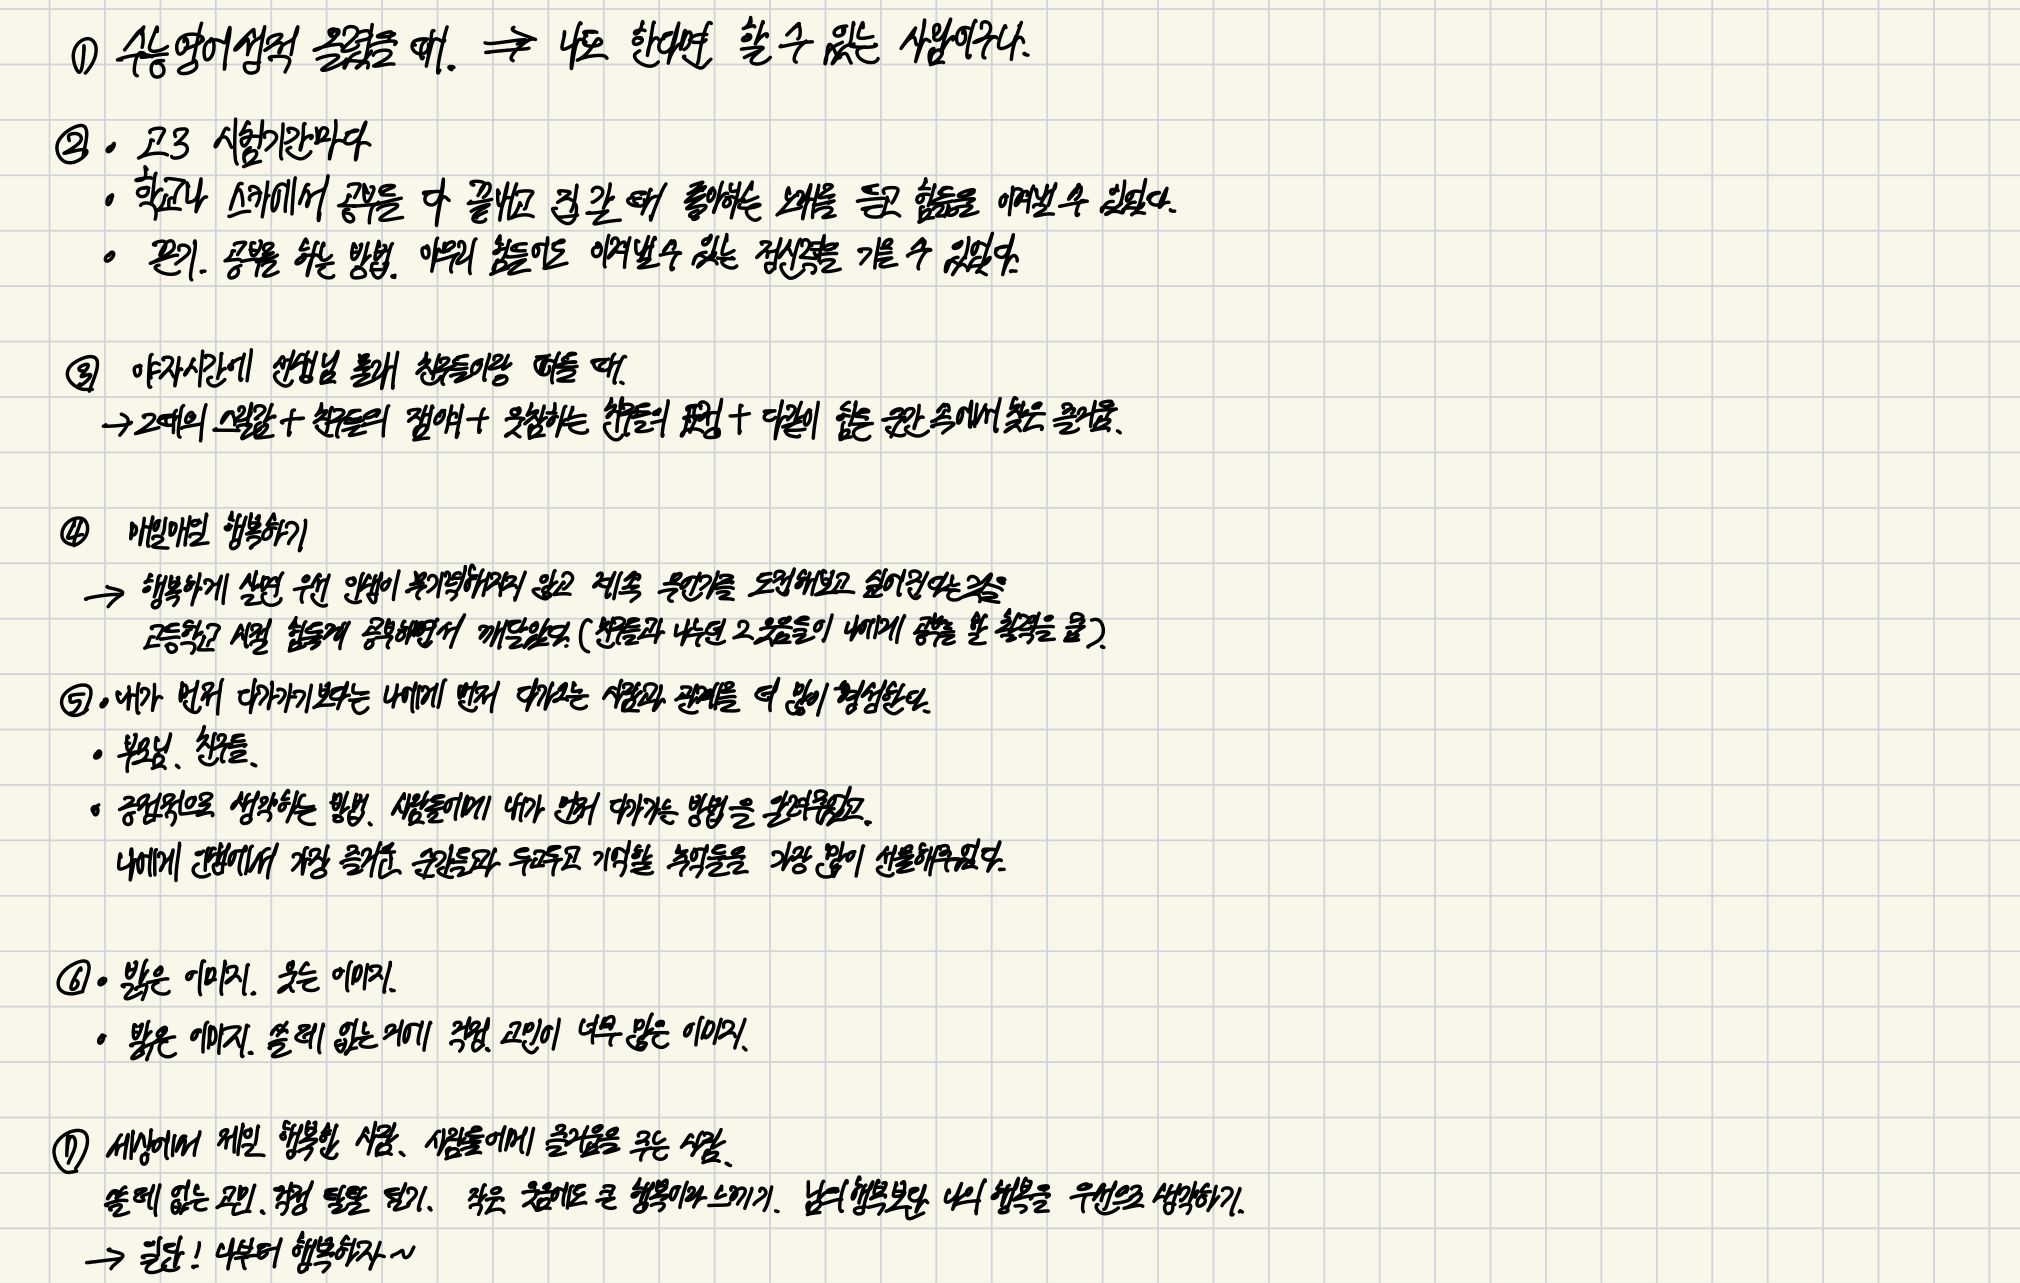 ① 수능영어성적 올렸을 때. ⇒ 나도 한다면 할 수 있는 사람이구나.
② • 고3 시험기간마다
• 학교나 스카에서 공부를 다 끝내고 집 갈 때 좋아하는 노래를 듣고 힘듦을 이겨낼 수 있었다.
• 끈기. 공부를 하는 방법. 아무리 힘들어도 이겨낼 수 있는 정신력을 기를 수 있었다.
③ 야자시간에 선생님 몰래 친구들이랑 떠들 때.
→ 그때의 스릴감 + 친구들의 잼얘 + 웃참하는 친구들의 표정 + 다같이 힘든 순간 속에서 찾은 즐거움.
④ 매일매일 행복하기
→ 행복하게 살면 우선 인생이 무기력해지지 않고 계속 무언가를 도전해보고 싶어진다는 것을
고등학교 시절 힘들게 공부하면서 깨달았다. (친구들과 나누던 그 웃음들이 나에게 공부를 할 활력을 줌)
⑤ • 내가 먼저 다가가기보다는 나에게 먼저 다가오는 사람과 관계를 더 많이 형성한다.
• 부모님, 친구들.
• 긍정적으로 생각하는 방법. 사람들에게 내가 먼저 다가가는 방법을 알려주었고.
나에게 인생에서 가장 즐거운 순간들과 두고두고 기억할 추억들을 가장 많이 선물해주었다.
⑥ • 밝은 이미지. 웃는 이미지.
• 밝은 이미지. 쓸 데 없는 거에 걱정, 고민이 너무 많은 이미지.
⑦ 세상에서 제일 행복한 사람. 사람들에게 즐거움을 주는 사람.
쓸 데 없는 고민, 걱정 털털 털기. 작은 웃음에도 큰 행복이라 느끼기. 남의 행복보단 나의 행복을 우선으로 생각하기.
→ 일단! 나부터 행복하자~